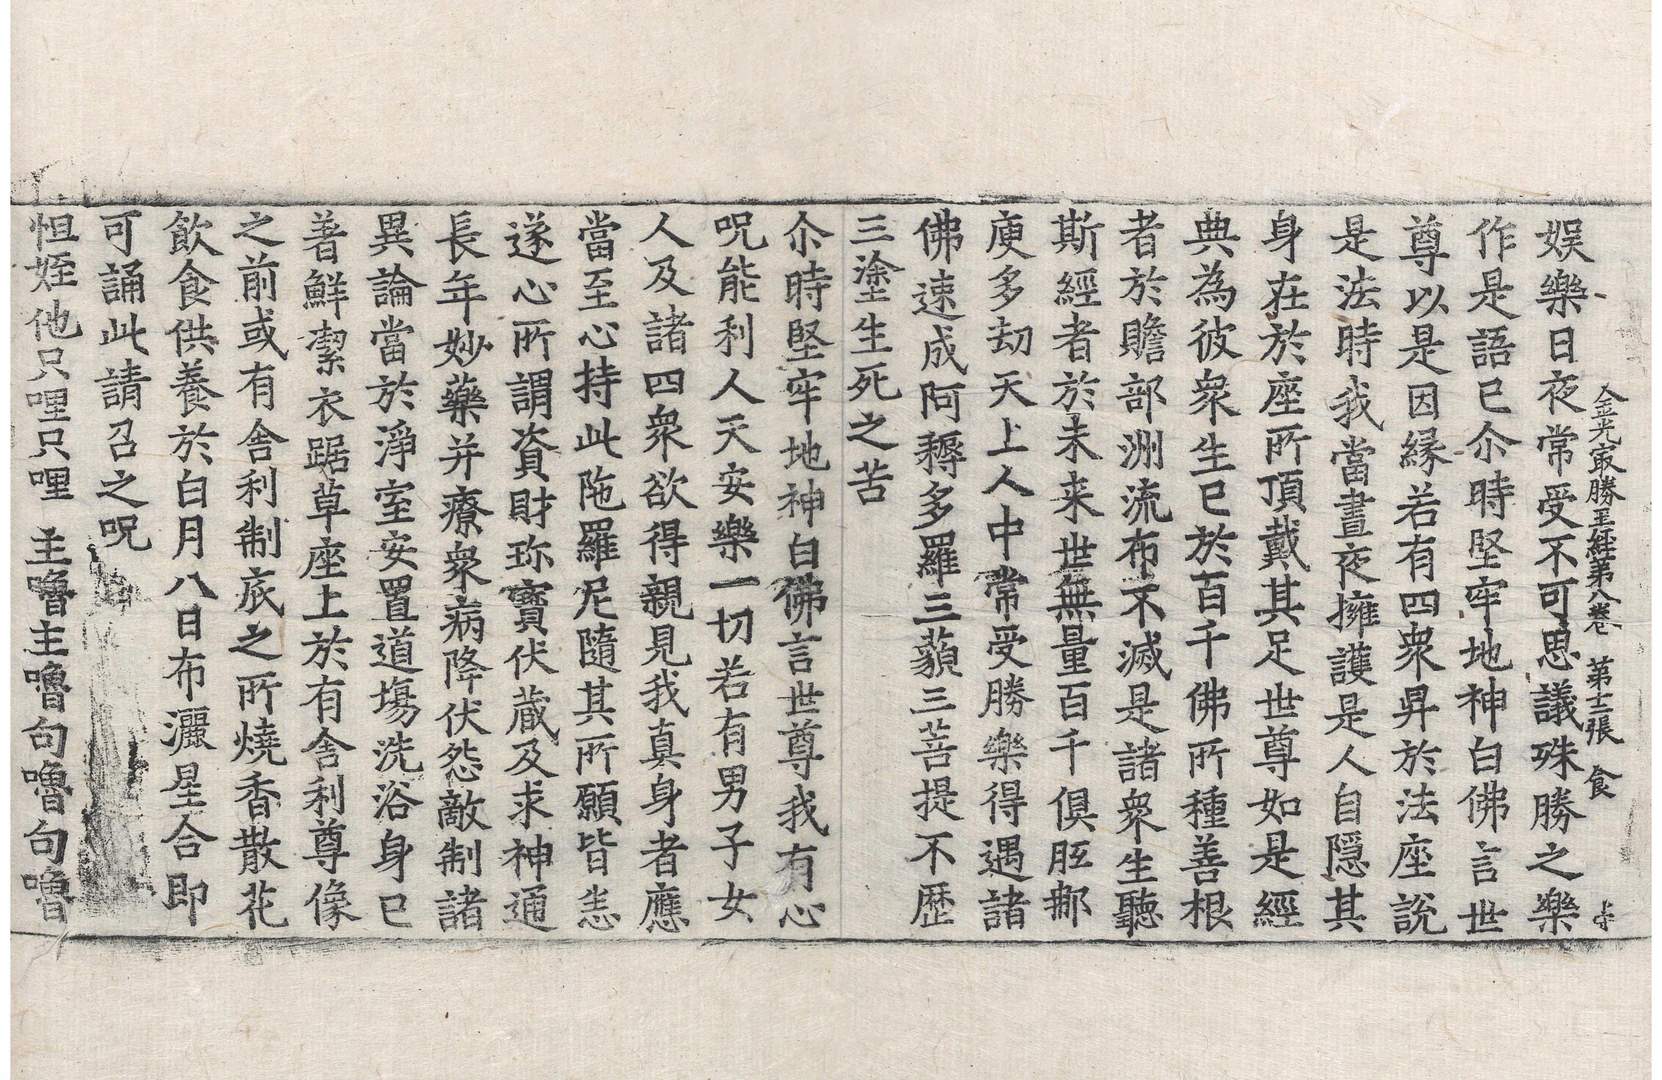 金光㝡勝王經第八卷 第十二張 食
娱樂日夜常受不可思議殊勝之樂
作是語已尒時堅牢地神白佛言世
尊以是因緣若有四衆昇於法座說
是法時我當晝夜擁護是人自隱其
身在於座所頂戴其足世尊如是經
典為彼衆生已於百千佛所種善根
者於贍部洲流布不滅是諸衆生聽
斯經者於未来世無量百千俱胝那
庾多劫天上人中常受勝樂得遇諸
佛速成阿耨多羅三藐三菩提不歷
三塗生死之苦
尒時堅牢地神白佛言世尊我有心
呪能利人天安樂一切若有男子女
人及諸四衆欲得親見我真身者應
當至心持此陁羅尼隨其所願皆悉
遂心所謂資財珎寶伏蔵及求神通
長年妙藥并療衆病降伏怨敵制諸
異論當於淨室安置道場洗浴身已
著鮮潔衣踞草座上於有舍利尊像
之前或有舍利制底之所燒香散花
飲食供養於白月八日布灑星合即
可誦此請召之呪
怛姪他只哩只哩 主嚕主嚕句嚕句嚕